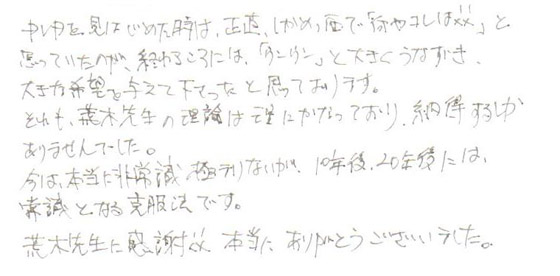 中レ中を見はじめた時は、正直、しかめっ面で「何やコレは××」と
思っていたのが、終わるころには、「ウンウン」と大きくうなずき、
大きな希望を与えて下さったと思っております。
それも、荒木先生の理論は理にかなっており、納得するしか
ありませんでした。
今は、本当に非常識極まりないが、10年後、20年後には、
常識となる克服法です。
荒木先生に感謝です××本当にありがとうございいました。